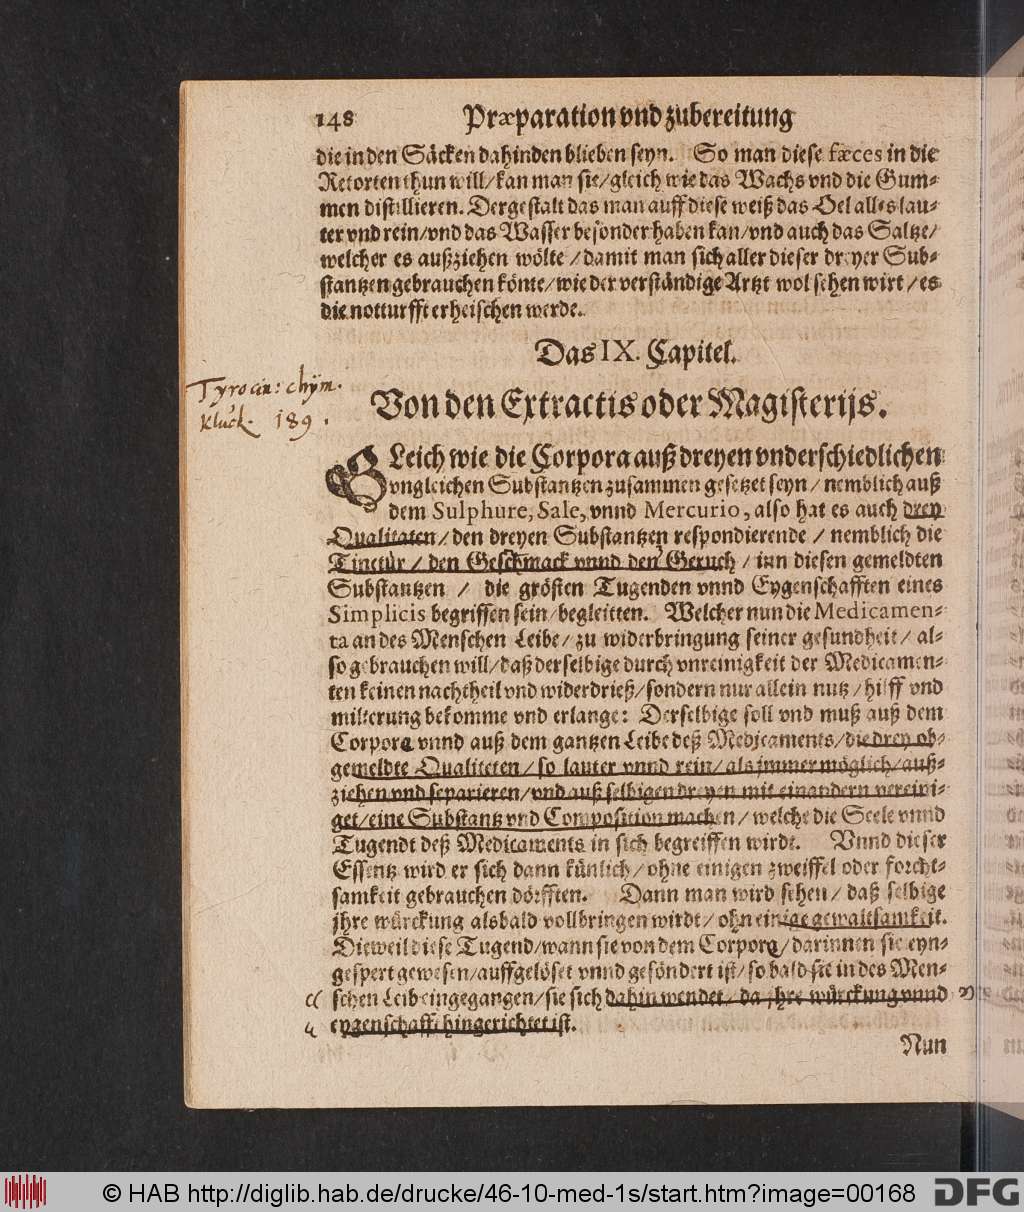 148 Præparation vnd zubereitung
die in den Säcken dahinden blieben seyn. So man diese fæces in die
Retorten thun will/ kan man sie/ gleich wie das Wachs vnd die Gum-
men distillieren. Dergestalt das man auff diese weiß das Oel alles lau-
ter vnd rein/ vnd das Wasser besonder haben kan/ vnd auch das Saltze/
welcher es außziehen wölte/ damit man sich aller dieser dreyer Sub-
stantzen gebrauchen könte/ wie der verständige Artzt wol sehen wirt/ es
die notturfft erheischen werde.
Das IX. Capitel.
Tyrocin: chÿm.
Kluck. 189.
Von den Extractis oder Magisterijs.
GLeich wie die Corpora auß dreyen vnderschiedlichen
vngleichen Substantzen zusammen gesetzet seyn/ nemblich auß
dem Sulphure, Sale, vnnd Mercurio, also hat es auch drey
Qualitaten/ den dreyen Substantzen respondierende/ nemblich die
Tinctur/ den Geschmack vnnd den Geruch/ inn diesen gemeldten
Substantzen/ die grösten Tugenden vnnd Eygenschafften eines
Simplicis begriffen sein/ begleitten. Welcher nun die Medicamen-
ta an des Menschen Leibe/ zu widerbringung seiner gesundheit/ al-
so gebrauchen will/ daß derselbige durch vnreinigkeit der Medicamen-
ten keinen nachtheil vnd widerdrieß/ sondern nur allein nutz/ hilff vnd
milterung bekomme vnd erlange: Derselbige soll vnd muß auß dem
Corpora vnnd auß dem gantzen Leibe deß Medicaments/ die drey ob-
gemeldte Qualiteten/ so lauter vnnd rein/ als jmmer möglich/ auß-
ziehen vnd separieren/ vnd auß selbigen dreyen mit einandern vereini-
get/ eine Substantz vnd Composition machen/ welche die Seele vnnd
Tugendt deß Medicaments in sich begreiffen wirdt. Vnnd dieser
Essentz wird er sich dann künlich/ ohne einigen zweiffel oder forcht-
samkeit gebrauchen dörfften. Dann man wird sehen/ daß selbige
jhre würckung alsbald vollbringen wirdt/ ohn einige gewaltsamkeit.
Dieweil diese Tugend/ wann sie von dem Corpora/ darinnen sie eyn-
gespert gewesen/ auffgelöset vnnd gesöndert ist/ so bald sie in des Men-
schen Leib eingegangen/ sie sich dahin wendet/ da jhre würckung vnnd
eygenschafft hingerichtet ist.
Nun
© HAB http://diglib.hab.de/drucke/46-10-med-1s/start.htm?image=00168 DFG